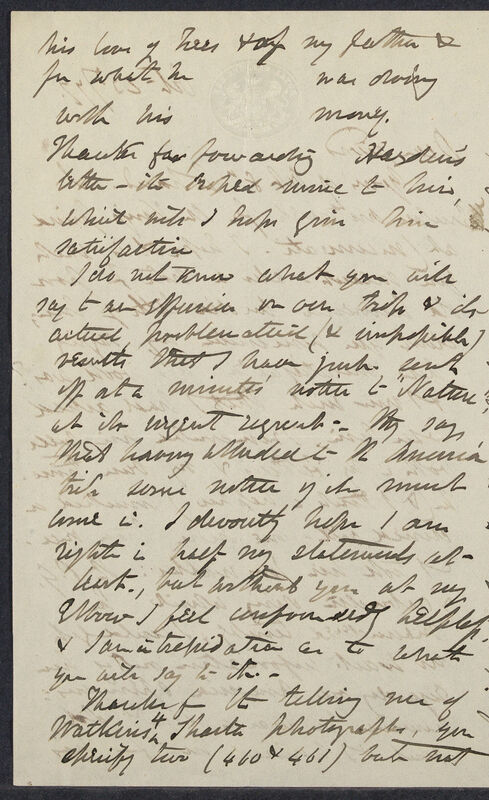 his love of trees & of my father &
for what he was doing
with his money.
Thanks for forwarding Hayden's
letter — it crossed mine to him,
which will I hope give him
satisfaction
I do not know what you will
say to an effusion on our trip & its
actual, problematical (& impossible)
results that I have just sent
off at a minutes' notice to "Nature",
at its urgent request — They say,
that having alluded to the N America
trip some notice of it must
come in. I devoutly hope I am
right in half my statements at-
least, but without you at my
Elbow I feel confoundedly helpless
& I am in trepidation as to what
you will say to it. —
Thanks for the telling me of
Watkins' 4 Shasta photographs, you
specify two (460 & 461) but not